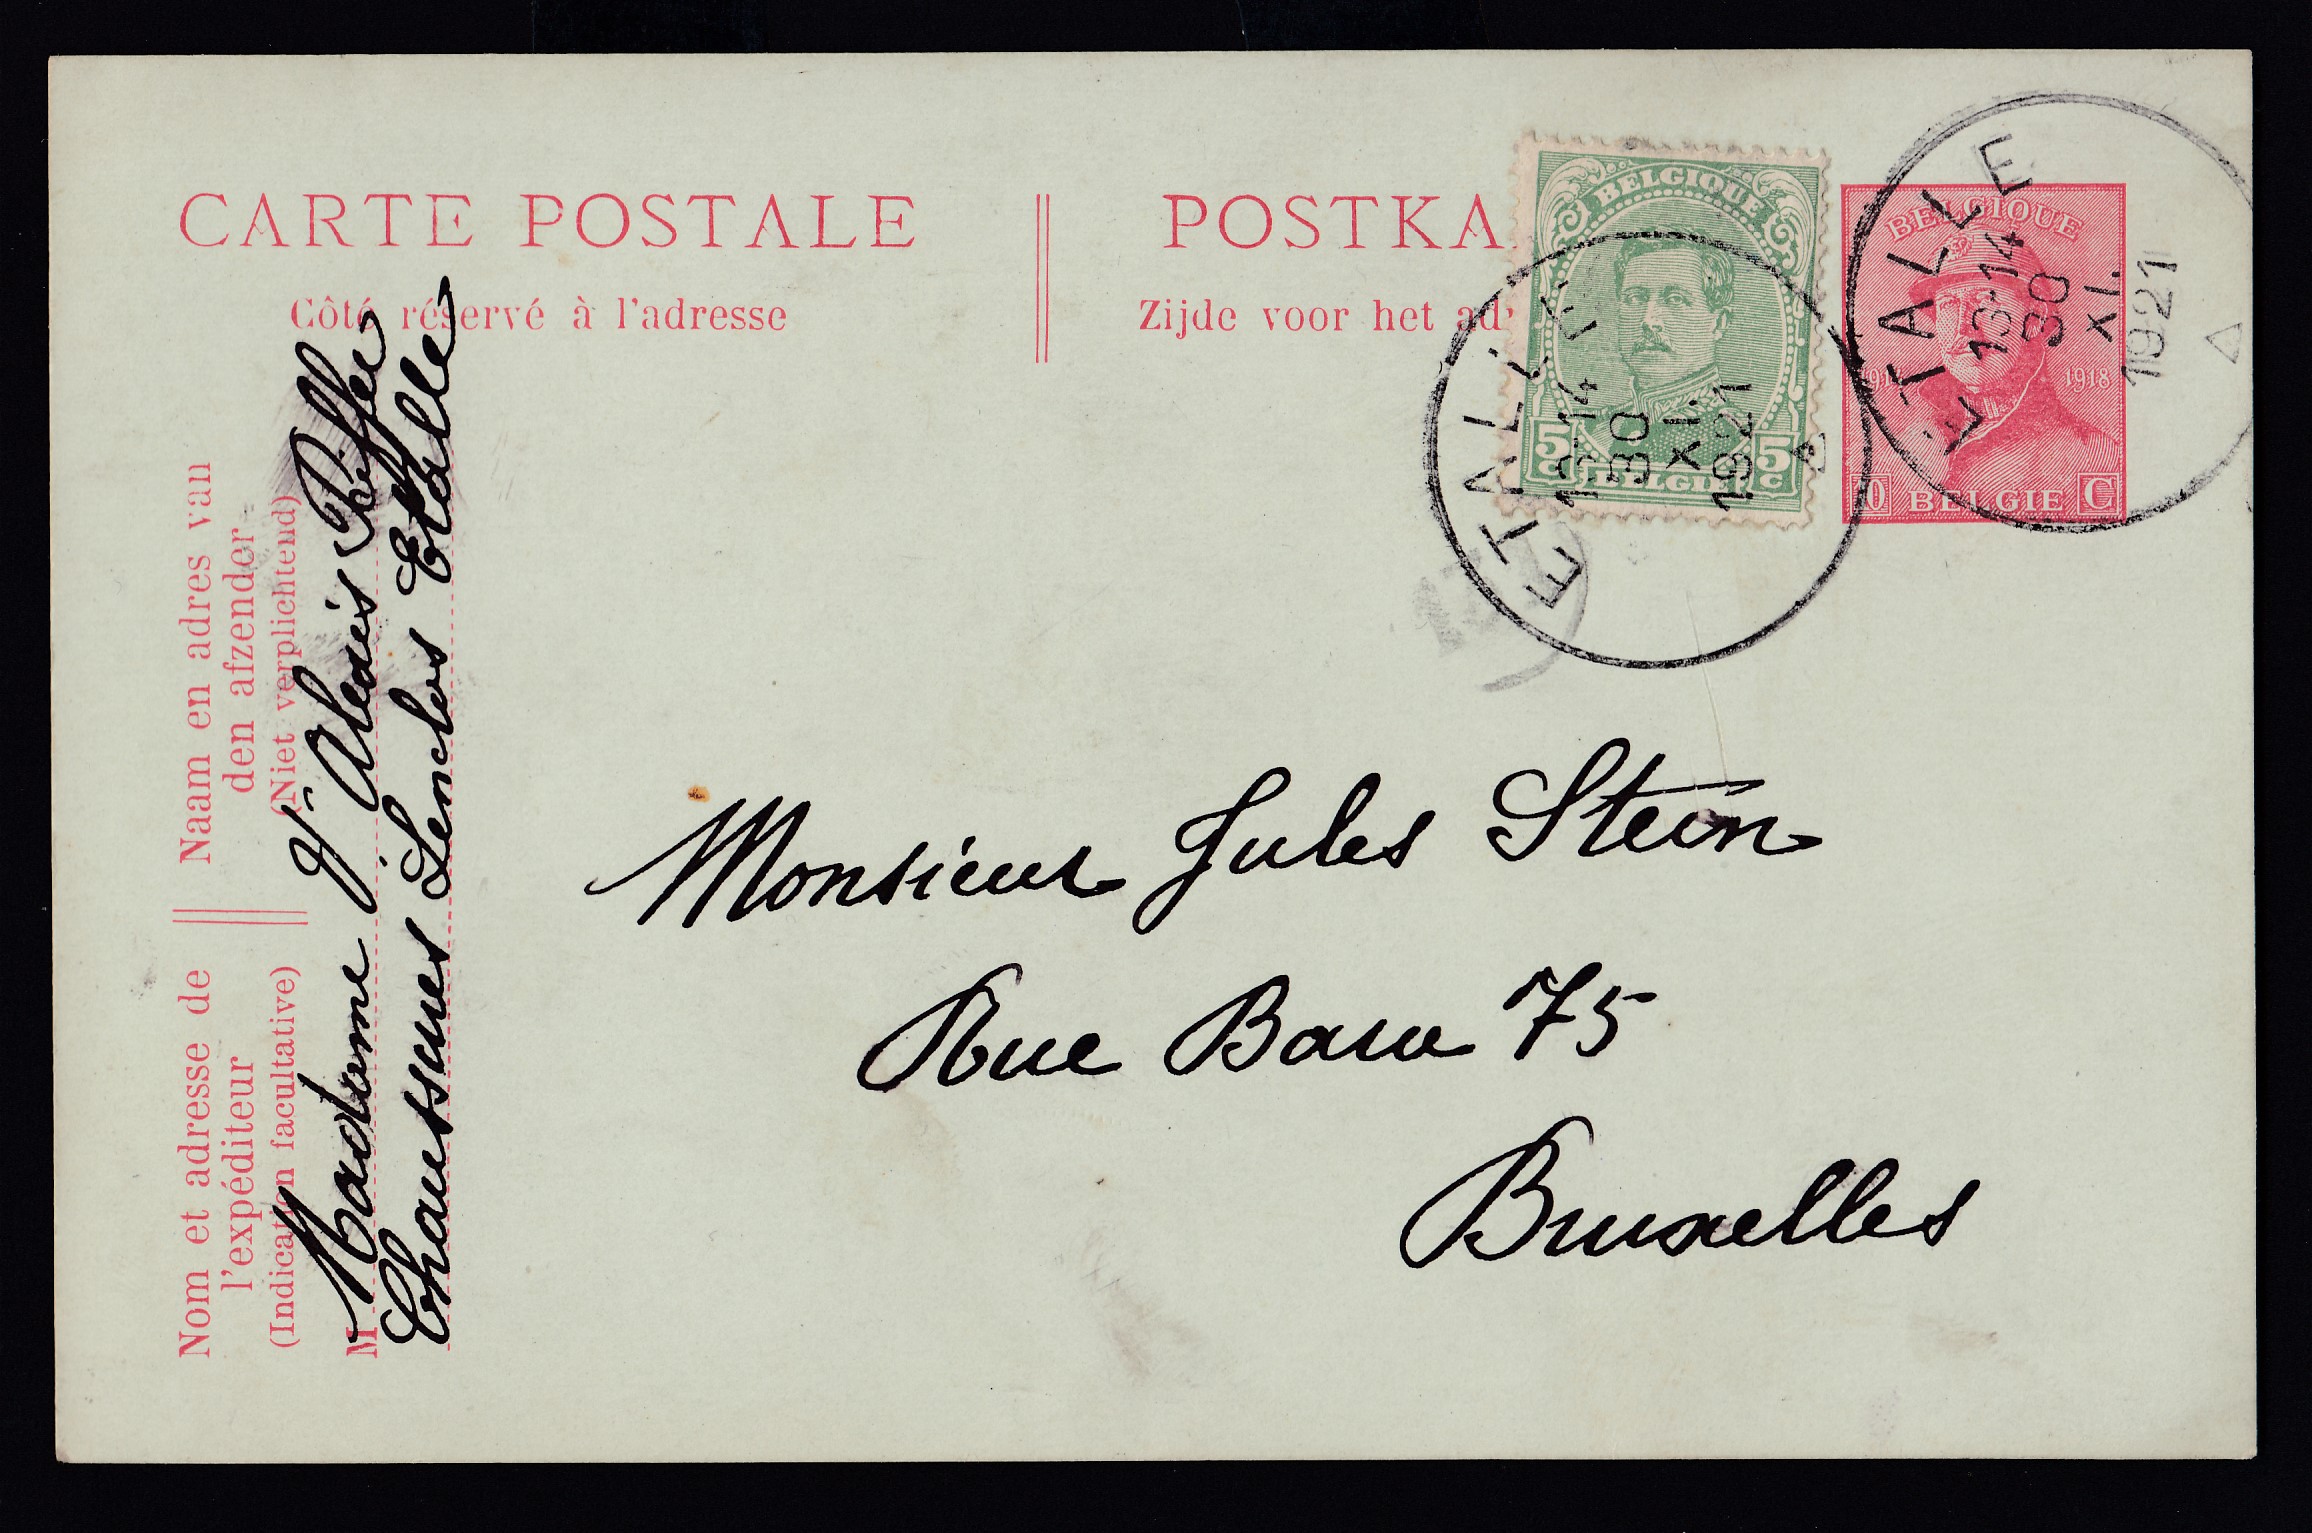 CARTE POSTALE
Côté réservé à l'adresse
POSTKA
Zijde voor het adr
BELGIQUE
5 C 5 C
BELGIË
ETALLE
13-14
30
XI.
1921
BELGIQUE
1918
BELGIE C
ETALLE
13-14
30
XI.
1921
Naam en adres van
den afzender
(Niet verplichtend)
Nom et adresse de
l'expéditeur
(Indication facultative)
M
Madame Vᵉ Alexis
Chaussures Lenclos Etalle
Monsieur Jules Stein
Rue Bara 75
Bruxelles